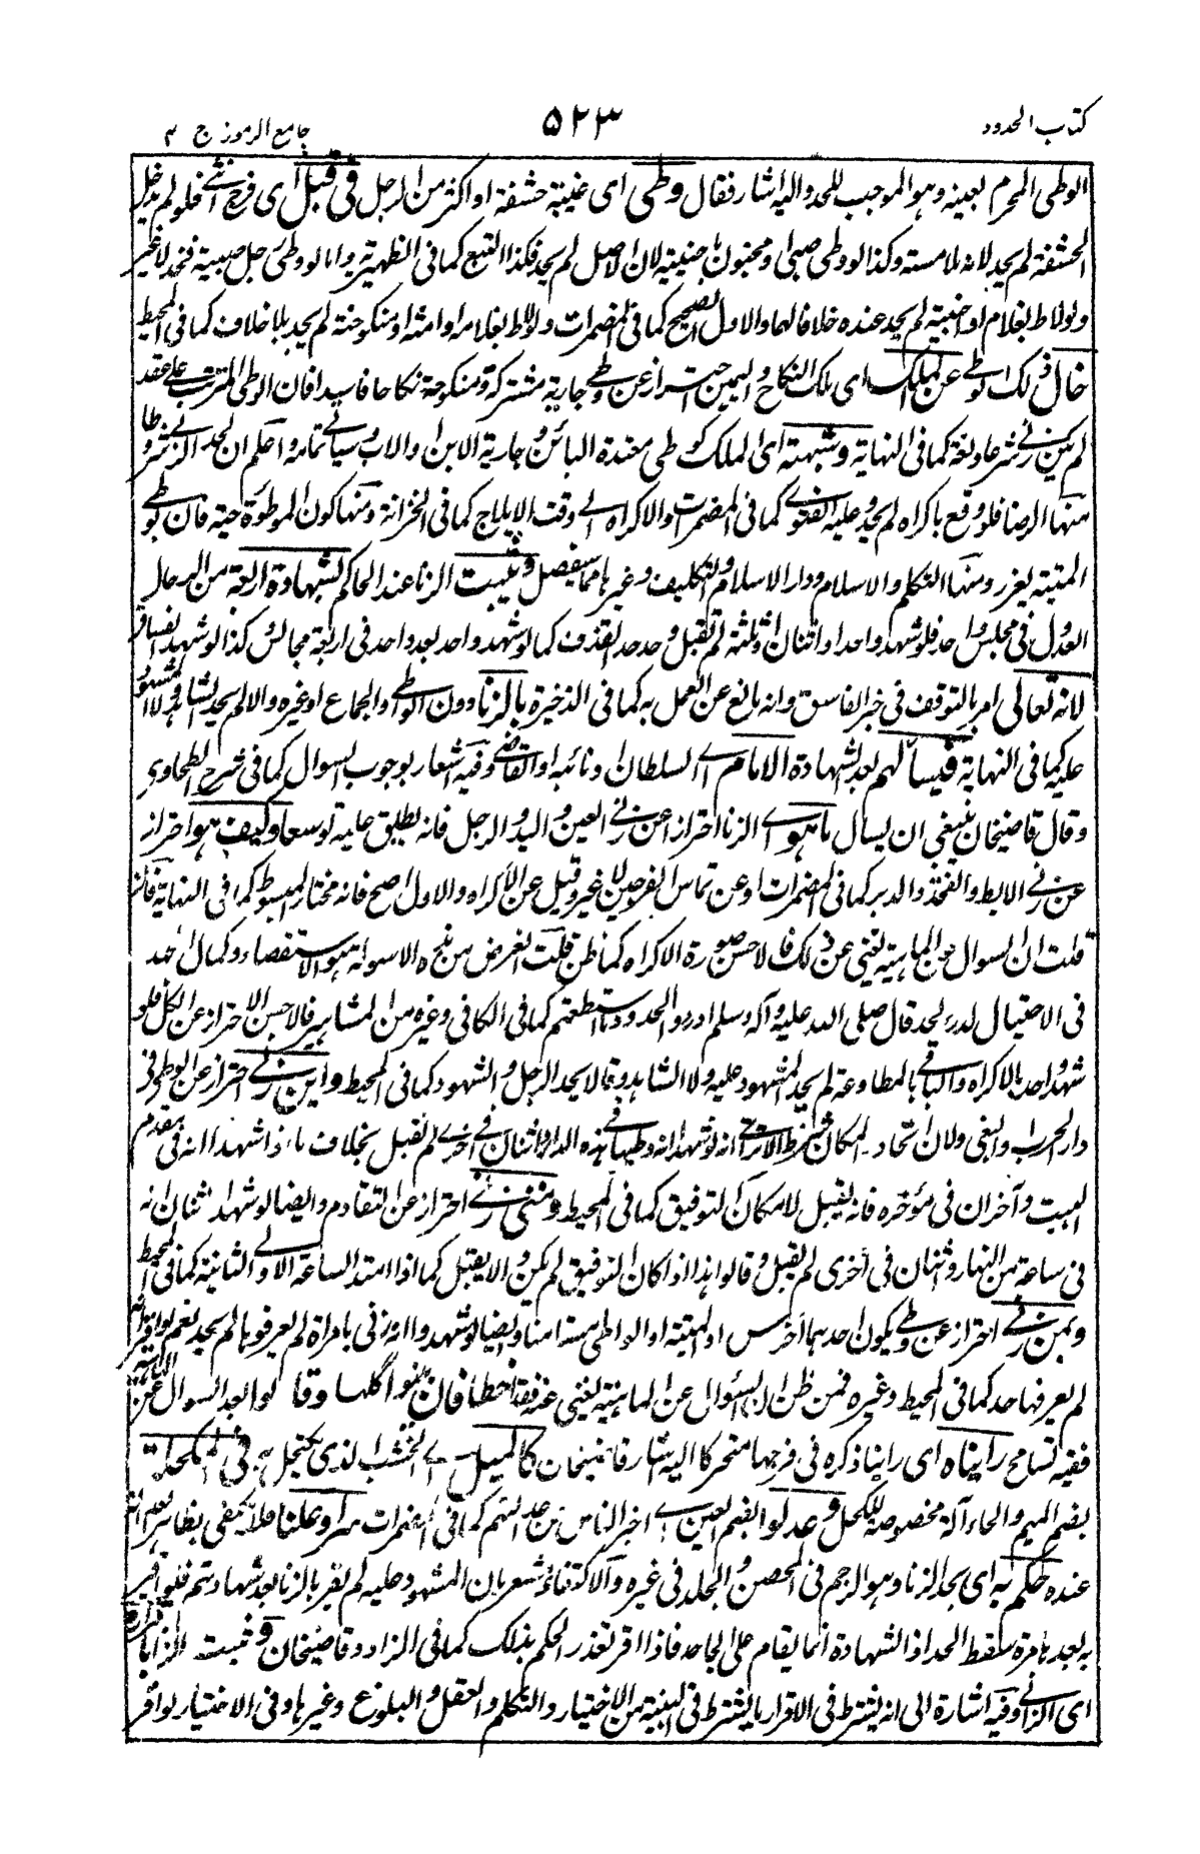 كتاب الحدود
۵۲۳
جامع الرموز ج ۳
الوطى المحرم لعينه وهو الموجب للحد واليه اشار فقال وطى اى غيبة حشفة او اكثر من الرجل فى قبل اى فرج انثى فلو لم يدخل
الحشفة لم يحد لانه ملامسة وكذا لو وطى صبى او مجنون باجنبية لان الاصل لم يحد فكذا التبع كما فى الظهيرية واما لو وطى رجل صبية فحد لا غير
ولو لاط بغلام او اجنبية لم يحد عنده خلافا لهما والاول الصحيح كما فى المضمرات ولو لاط بغلامه او امته او منكوحته لم يحد بلا خلاف كما فى المحيط
خال ذلك الوطى عن الملك اى ملك النكاح واليمين احتراز عن وطى جارية مشتركة ومنكوحة نكاحا فاسدا فان الوطى المترتب على عقد
لم يكن زنى شرعا ولغة كما فى النهاية وشبهته اى الملك كوطى معتدة البائن وجارية الابن والاب وسيأتى تمامه واعلم ان لحد الزنى شروطا
منها الرضا فلو وقع باكراه لم يحد وعليه الفتوى كما فى المضمرات والاكراه اى وقت الايلاج كما فى الخزانة ومنها كون الموطوءة حية فان لوطى
الميتة يعزر ومنها التكلم والاسلام ودار الاسلام والتكليف وغيرها مما سيفصل ويثبت الزنا عند الحاكم بشهادة اربعة من الرجال
العدول فى مجلس واحد فلو شهد واحد او اثنان او ثلثة لم تقبل وحد حد القذف كما لو شهد واحد بعد واحد فى اربعة مجالس كذا لو شهد الفساق
لانه تعالى امر بالتوقف فى خبر الفاسق وانه مانع عن العمل به كما فى الذخيرة بالزنا دون الوطى والجماع او غيره والا لم يحد الشاهد ولا المشهود
عليه كما فى النهاية فيسألهم بعد الشهادة الامام اى السلطان ونائبه او القاضى وفيه اشعار بوجوب السوال كما فى شرح الطحاوى
وقال قاضيخان ينبغى ان يسأل ما هو اى الزنا احتراز عن زنى العين واليد والرجل فانه يطلق عليه توسعا وكيف هو احتراز
عن زنى الابط والفخذ والدبر كما فى المضمرات او عن تماس الفرجين لا غير وقيل عن الاكراه والاول اصح فانه مختار المبسوط كما فى النهاية فان
قلت ان السوال عن الماهية يغنى عن ذلك فالاحسن صورة الاكراه كما ظن قلت الغرض من هذه الاسولة هو الاستقصاء وكمال الجد
فى الاحتيال لدرء الحد قال صلى الله عليه وآله وسلم ادرءوا الحدود ما استطعتم كما فى الكافى وغيره من المشاهير فالاحسن الاحتراز عن الكل فلو
شهد واحد بالاكراه والباقى بالمطاوعة لم يحد المشهود عليه ولا الشاهد وقالا يحد الرجل والشهود كما فى المحيط واين زنى احتراز عن الوطى فى
دار الحرب والبغى ولان اتحاد المكان شرط الا ترى انه لو شهدا انه وطيها فى هذه الدار واثنان فى اخرى لم تقبل بخلاف ما اذا شهدا انه فى مقدم
البيت وآخران فى مؤخره فانه يقبل لامكان التوفيق كما فى المحيط ومتى زنى احتراز عن التقادم وايضا لو شهد اثنان انه
فى ساعة من النهار واثنان فى أخرى لم تقبل وقالوا هذا اذا كان التوفيق لم يمكن والا يقبل كما اذا امتد الساعة الاولى الى الثانية كما فى المحيط
وبمن زنى احتراز عن وطى يكون احدهما اخرس او الميتة او الواطى مستامنا وايضا لو شهدوا انه زنى بامرأة لم يعرفوها لم يحد نعم لو اقر انه
لم يعرفها حد كما فى المحيط وغيره فمن ظن ان السؤال عن الماهية يغنى عنه فقد اخطا فان بينوا كلها وقالوا بعد السوال عن الماهية
ففيه تسامح رايناه اى راينا ذكره فى فرجها متحركا اليه اشار قاضيخان كالميل اى الخشب الذى يكتحل به فى المكحلة
بضم الميم والحاء آلة مخصوصة للكحل وعدلوا بضم العين اى اخبر الناس عن عدالتهم كما فى المضمرات سرا وعلنا فلا يكفى بظاهر العدالة
عنده حكم به اى بحد الزنا وهو الرجم فى المحصن والجلد فى غيره والاكتفاء مشعر بان المشهود عليه لم يقر بالزنا بعد شهادتهم فلو اقر
به بعدها مرة سقط الحد اذ الشهادة انما يقام على الجاحد فاذا اقر تعذر الحكم بذلك كما فى الزاد وقاضيخان ويثبت الزنا باقراره
اى الزانى وفيه اشارة الى انه يشترط فى الاقرار ما يشترط فى البينة من الاختيار والتكلم والعقل والبلوغ وغيرها وفى الاختيار لو اقر